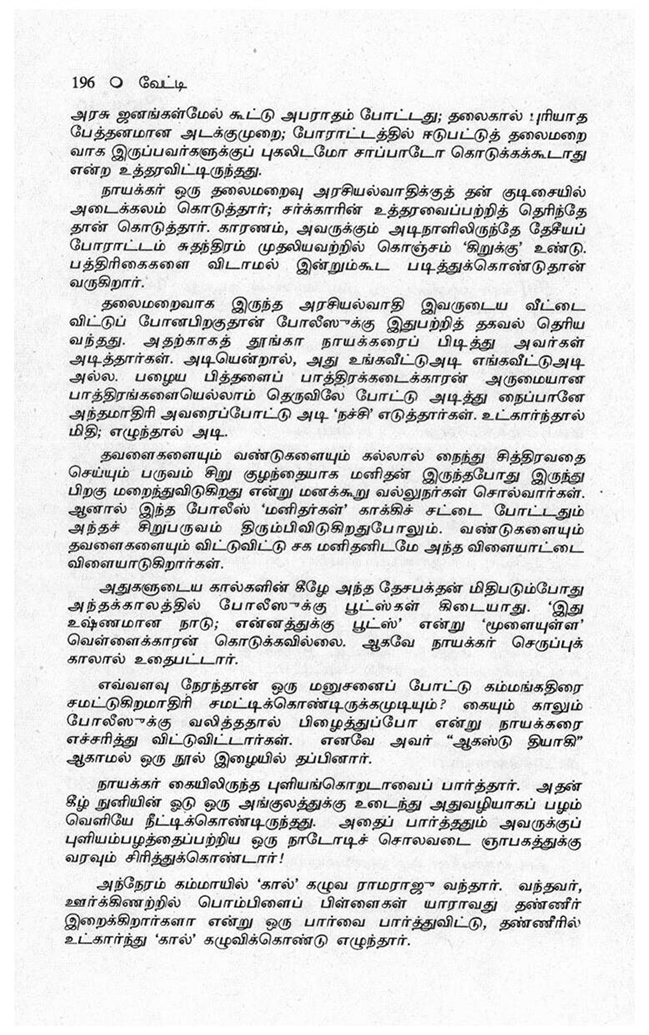 196 ○ வேட்டி
அரசு ஜனங்கள்மேல் கூட்டு அபராதம் போட்டது; தலைகால் புரியாத
பேத்தனமான அடக்குமுறை; போராட்டத்தில் ஈடுபட்டுத் தலைமறை
வாக இருப்பவர்களுக்குப் புகலிடமோ சாப்பாடோ கொடுக்கக்கூடாது
என்ற உத்தரவிட்டிருந்தது.
நாயக்கர் ஒரு தலைமறைவு அரசியல்வாதிக்குத் தன் குடிசையில்
அடைக்கலம் கொடுத்தார்; சர்க்காரின் உத்தரவைப்பற்றித் தெரிந்தே
தான் கொடுத்தார். காரணம், அவருக்கும் அடிநாளிலிருந்தே தேசீயப்
போராட்டம் சுதந்திரம் முதலியவற்றில் கொஞ்சம் ‘கிறுக்கு’ உண்டு.
பத்திரிகைகளை விடாமல் இன்றும்கூட படித்துக்கொண்டுதான்
வருகிறார்.
தலைமறைவாக இருந்த அரசியல்வாதி இவருடைய வீட்டை
விட்டுப் போனபிறகுதான் போலீஸுக்கு இதுபற்றித் தகவல் தெரிய
வந்தது. அதற்காகத் தூங்கா நாயக்கரைப் பிடித்து அவர்கள்
அடித்தார்கள். அடியென்றால், அது உங்கவீட்டுஅடி எங்கவீட்டுஅடி
அல்ல. பழைய பித்தளைப் பாத்திரக்கடைக்காரன் அருமையான
பாத்திரங்களையெல்லாம் தெருவிலே போட்டு அடித்து நைப்பானே
அந்தமாதிரி அவரைப்போட்டு அடி ‘நச்சி’ எடுத்தார்கள். உட்கார்ந்தால்
மிதி; எழுந்தால் அடி.
தவளைகளையும் வண்டுகளையும் கல்லால் நைந்து சித்திரவதை
செய்யும் பருவம் சிறு குழந்தையாக மனிதன் இருந்தபோது இருந்து
பிறகு மறைந்துவிடுகிறது என்று மனக்கூறு வல்லுநர்கள் சொல்வார்கள்.
ஆனால் இந்த போலீஸ் ‘மனிதர்கள்’ காக்கிச் சட்டை போட்டதும்
அந்தச் சிறுபருவம் திரும்பிவிடுகிறதுபோலும். வண்டுகளையும்
தவளைகளையும் விட்டுவிட்டு சக மனிதனிடமே அந்த விளையாட்டை
விளையாடுகிறார்கள்.
அதுகளுடைய கால்களின் கீழே அந்த தேசபக்தன் மிதிபடும்போது
அந்தக்காலத்தில் போலீஸுக்கு பூட்ஸ்கள் கிடையாது. ‘இது
உஷ்ணமான நாடு; என்னத்துக்கு பூட்ஸ்’ என்று ‘மூளையுள்ள’
வெள்ளைக்காரன் கொடுக்கவில்லை. ஆகவே நாயக்கர் செருப்புக்
காலால் உதைபட்டார்.
எவ்வளவு நேரந்தான் ஒரு மனுசனைப் போட்டு கம்மங்கதிரை
சமட்டுகிறமாதிரி சமட்டிக்கொண்டிருக்கமுடியும்? கையும் காலும்
போலீஸுக்கு வலித்ததால் பிழைத்துப்போ என்று நாயக்கரை
எச்சரித்து விட்டுவிட்டார்கள். எனவே அவர் “ஆகஸ்டு தியாகி”
ஆகாமல் ஒரு நூல் இழையில் தப்பினார்.
நாயக்கர் கையிலிருந்த புளியங்கொறடாவைப் பார்த்தார். அதன்
கீழ் நுனியின் ஓடு ஒரு அங்குலத்துக்கு உடைந்து அதுவழியாகப் பழம்
வெளியே நீட்டிக்கொண்டிருந்தது. அதைப் பார்த்ததும் அவருக்குப்
புளியம்பழத்தைப்பற்றிய ஒரு நாடோடிச் சொலவடை ஞாபகத்துக்கு
வரவும் சிரித்துக்கொண்டார்!
அந்நேரம் கம்மாயில் ‘கால்’ கழுவ ராமராஜு வந்தார். வந்தவர்,
ஊர்க்கிணற்றில் பொம்பிளைப் பிள்ளைகள் யாராவது தண்ணீர்
இறைக்கிறார்களா என்று ஒரு பார்வை பார்த்துவிட்டு, தண்ணீரில்
உட்கார்ந்து ‘கால்’ கழுவிக்கொண்டு எழுந்தார்.